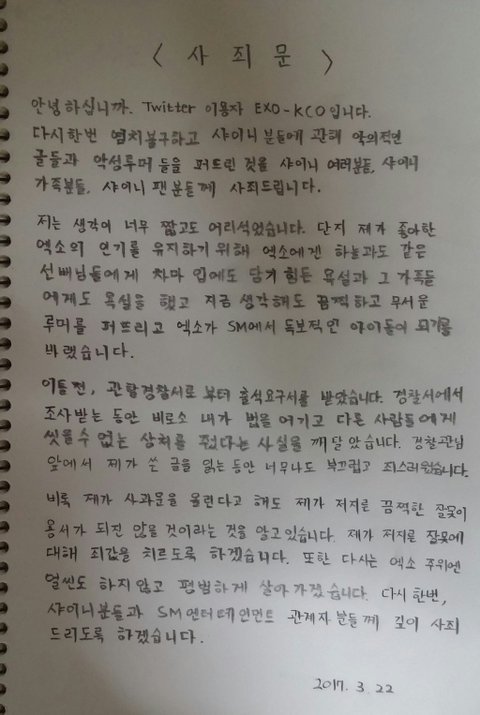 < 사 죄 문 >
안녕하십니까. Twitter 이용자 EXO-KCO입니다.
다시한번 염치불구하고 샤이니분들에 관해 악의적인
글들과 악성루머 들을 퍼트린 것을 샤이니 여러분들, 샤이니
가족분들, 샤이니 팬분들께 사죄드립니다.
저는 생각이 너무 짧고도 어리석었습니다. 단지 제가 좋아한
엑소의 인기를 유지하기 위해 엑소에겐 하늘과도 같은
선배님들에게 차마 입에도 담기 힘든 욕설과 그 가족들
에게도 욕설을 했고 지금 생각해도 끔찍하고 무서운
루머를 퍼트리고 엑소가 SM에서 독보적인 아이돌이 되기를
바랬습니다.
이틀전, 관할경찰서로 부터 출석요구서를 받았습니다. 경찰서에서
조사받는 동안 비로소 내가 법을 어기고 다른 사람들에게
씻을수 없는 상처를 줬다는 사실을 깨달았습니다. 경찰관님
앞에서 제가 쓴 글을 읽는동안 너무나도 부끄럽고 죄스러웠습니다.
비록 제가 사과문을 올린다고 해도 제가 저지른 끔찍한 잘못이
용서가 되진 않을것이라는 것을 알고있습니다. 제가 저지른 잘못에
대해 죄값을 치르도록 하겠습니다. 또한 다시는 엑소 주위엔
얼씬도 하지않고 평범하게 살아가겠습니다. 다시한번,
샤이니분들과 SM엔터테인먼트 관계자분들께 깊이 사죄
드리도록 하겠습니다.
2017. 3. 22